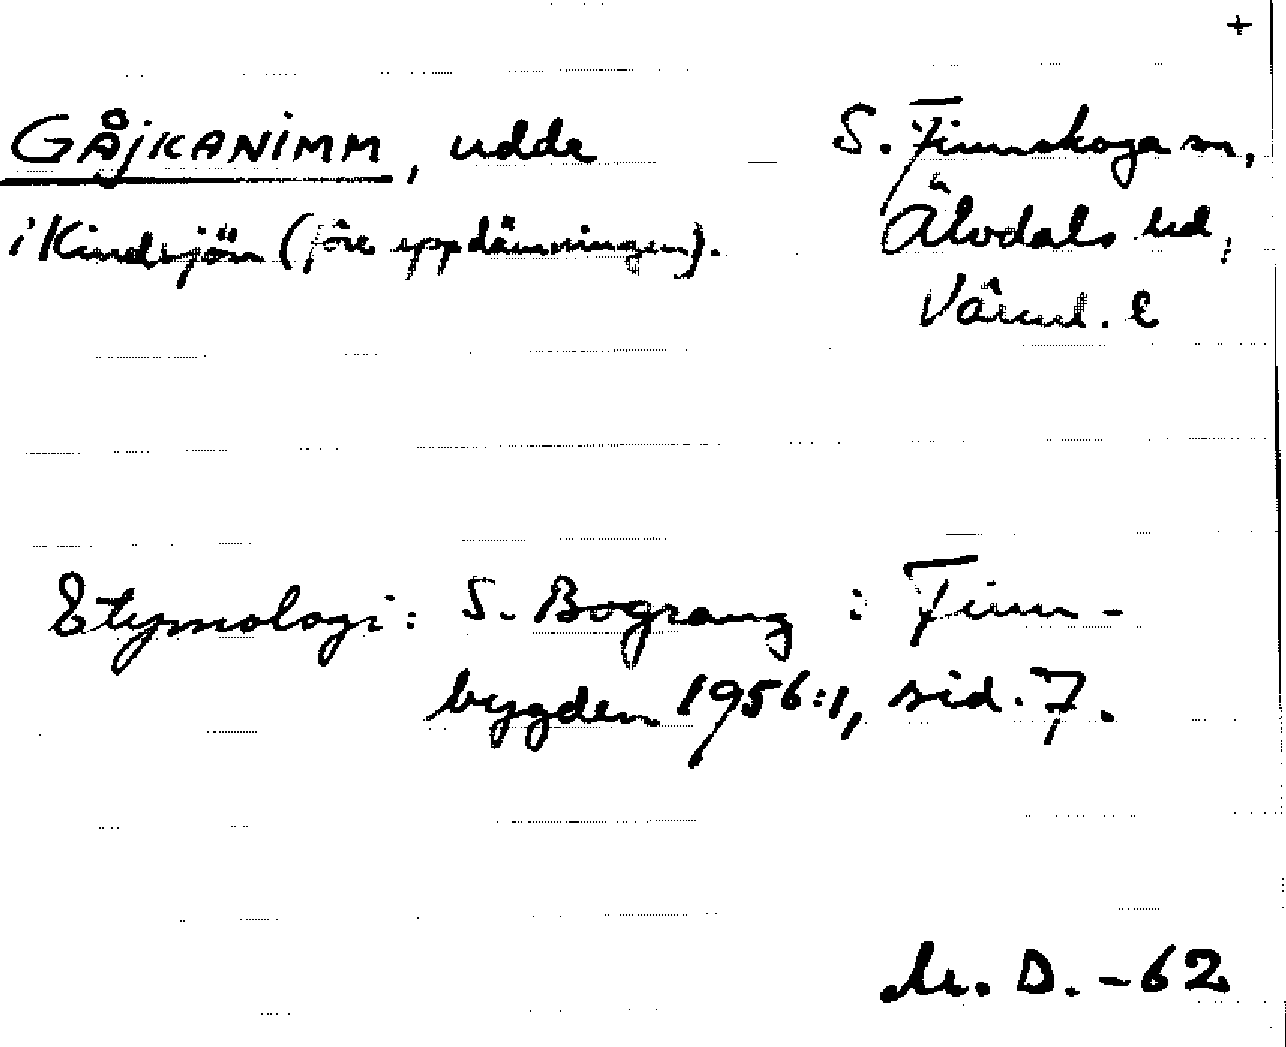 +
GÅJKANIMM, udde — S. Finnskoga sn,
i Kindsjön (före uppdämningen). Älvdals hd,
Värml. l
Etymologi: S. Bograng : Finn-
bygden 1956:1, sid. 7.
D. -62